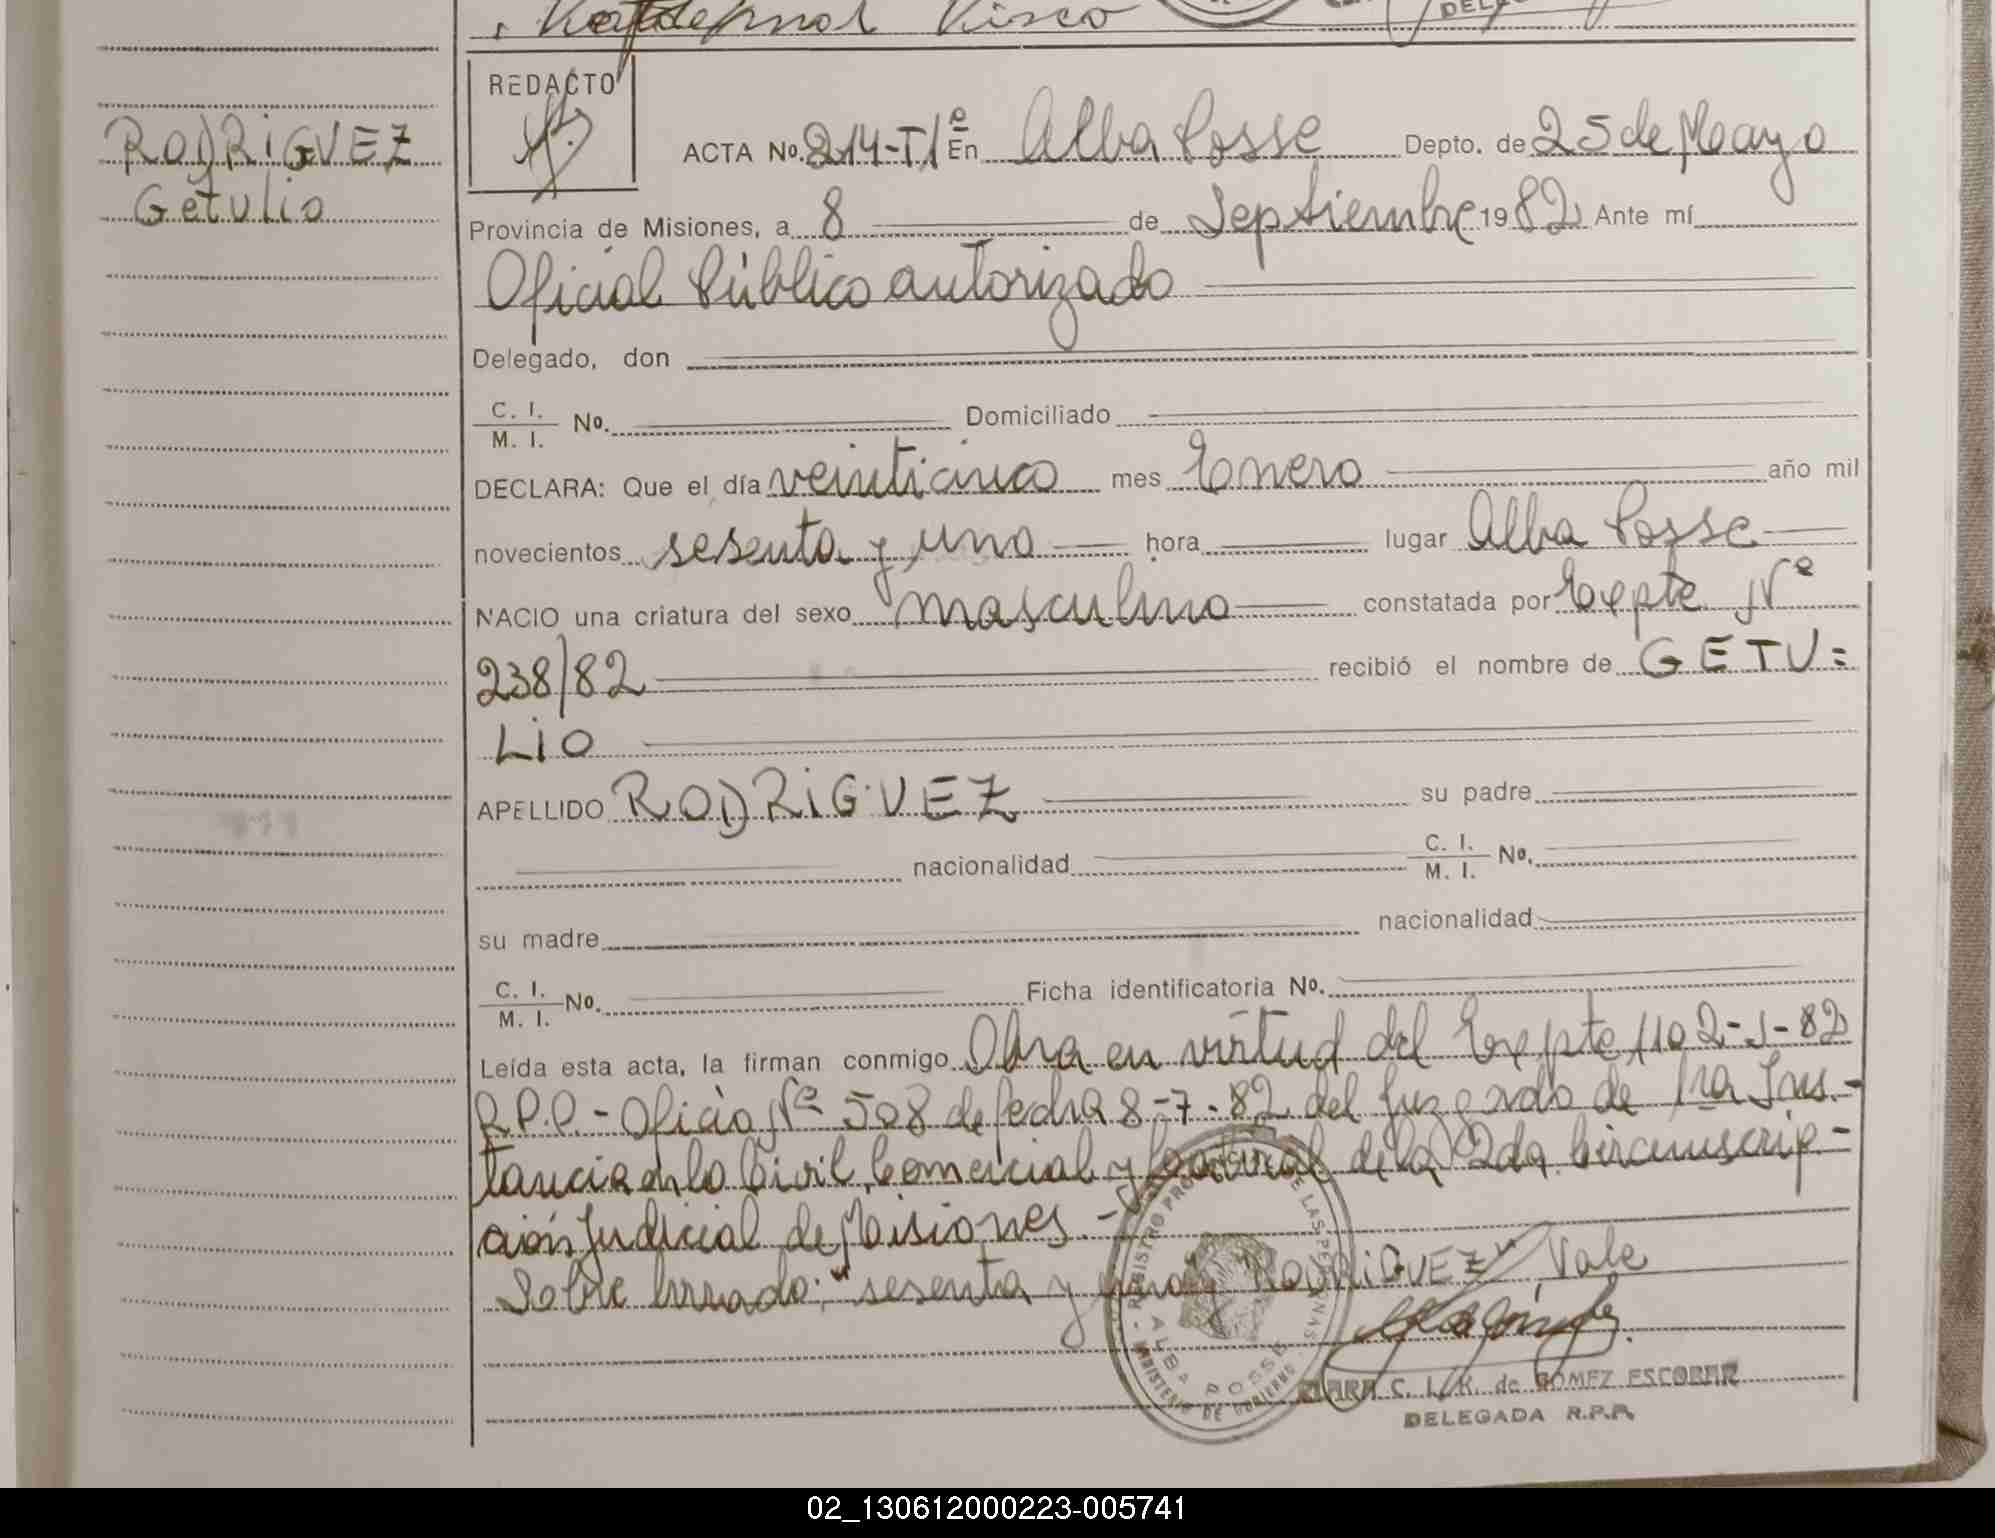 DELE
REDACTO
RODRIGUEZ
Getulio
ACTA No. 214-T/ª En Alba Posse Depto. de 25 de Mayo
Provincia de Misiones, a 8 de Septiembre 1982 Ante mí
Oficial Público autorizado
Delegado, don
C. I. / M. I. No. Domiciliado
DECLARA: Que el día veinticinco mes Enero año mil
novecientos sesenta y uno hora lugar Alba Posse
NACIO una criatura del sexo masculino constatada por Expte Nº
238/82 recibió el nombre de GETU=
LIO
APELLIDO RODRIGUEZ su padre
nacionalidad C. I. / M. I. No.
su madre nacionalidad
C. I. / M. I. No. Ficha identificatoria No.
Leída esta acta, la firman conmigo Obra en virtud del Expte 1102-J-82
R.P.P.- Oficio Nº 508 de fecha 8-7-82 del Juzgado de 1ra Ins.-
tancia en lo Civil, Comercial y Laboral de la 2da Circunscrip=
ción Judicial de Misiones.-
Sobre borrado: "sesenta y uno y RODRIGUEZ" Vale
REGISTRO PROVINCIAL DE LAS PERSONAS
ALBA POSSE
MINISTERIO DE GOBIERNO
CLARA C. L. K. de GOMEZ ESCOBAR
DELEGADA R.P.P.
02_130612000223-005741